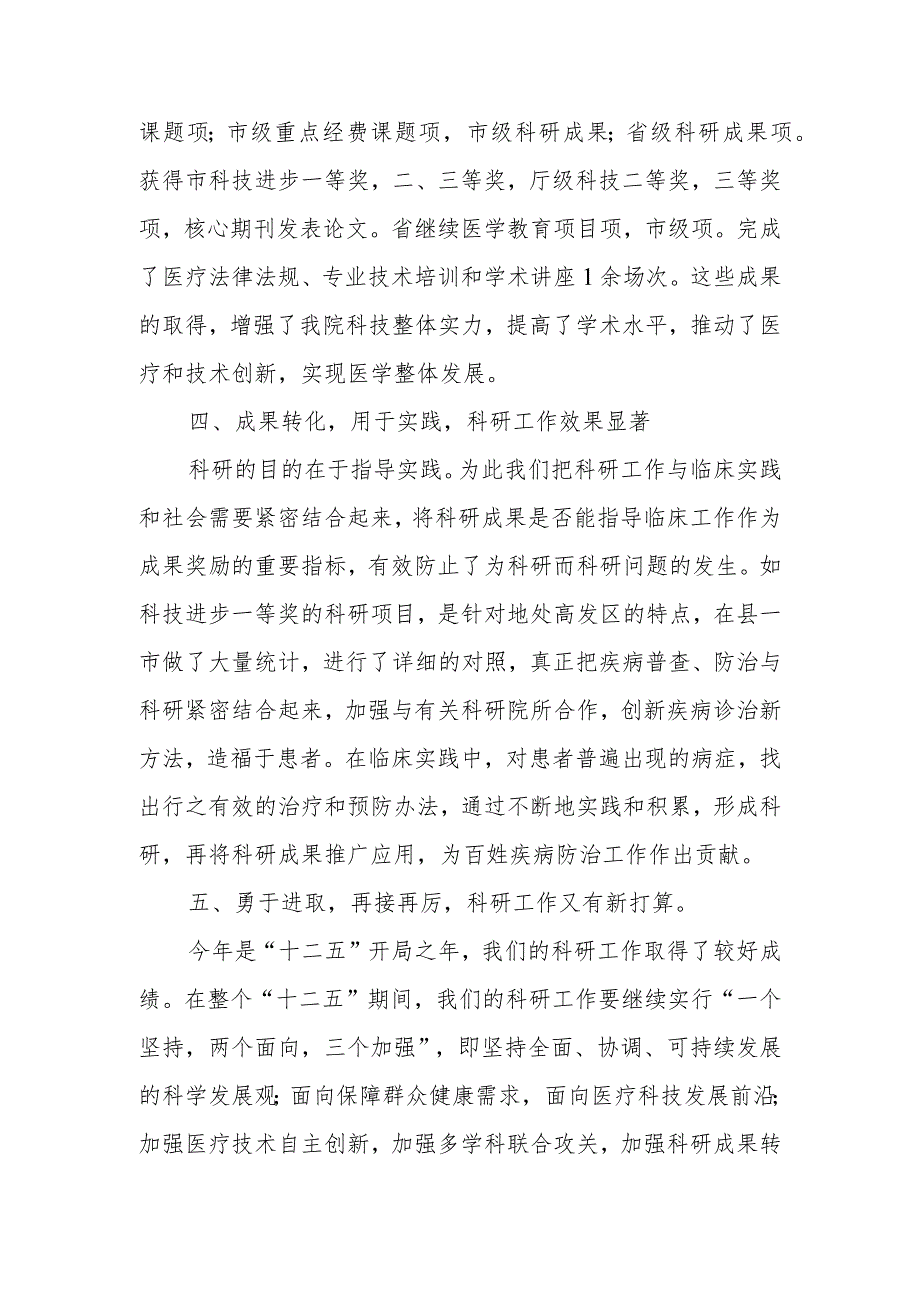 课题项；市级重点经费课题项，市级科研成果；省级科研成果项。
获得市科技进步一等奖，二、三等奖，厅级科技二等奖，三等奖
项，核心期刊发表论文。省继续医学教育项目项，市级项。完成
了医疗法律法规、专业技术培训和学术讲座1余场次。这些成果
的取得，增强了我院科技整体实力，提高了学术水平，推动了医
疗和技术创新，实现医学整体发展。
四、成果转化，用于实践，科研工作效果显著
科研的目的在于指导实践。为此我们把科研工作与临床实践
和社会需要紧密结合起来，将科研成果是否能指导临床工作作为
成果奖励的重要指标，有效防止了为科研而科研问题的发生。如
科技进步一等奖的科研项目，是针对地处高发区的特点，在县一
市做了大量统计，进行了详细的对照，真正把疾病普查、防治与
科研紧密结合起来，加强与有关科研院所合作，创新疾病诊治新
方法，造福于患者。在临床实践中，对患者普遍出现的病症，找
出行之有效的治疗和预防办法，通过不断地实践和积累，形成科
研，再将科研成果推广应用，为百姓疾病防治工作作出贡献。
五、勇于进取，再接再厉，科研工作又有新打算。
今年是“十二五”开局之年，我们的科研工作取得了较好成
绩。在整个“十二五”期间，我们的科研工作要继续实行“一个
坚持，两个面向，三个加强”，即坚持全面、协调、可持续发展
的科学发展观；面向保障群众健康需求，面向医疗科技发展前沿；
加强医疗技术自主创新，加强多学科联合攻关，加强科研成果转